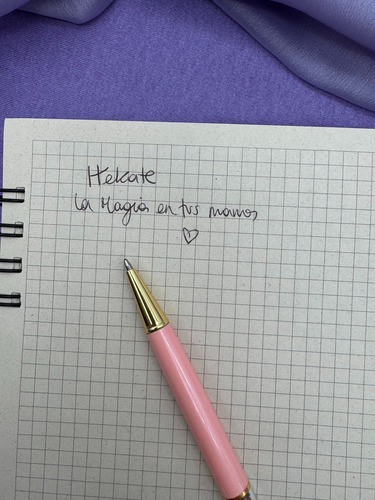 Hekate
La Magia en tus manos
♡